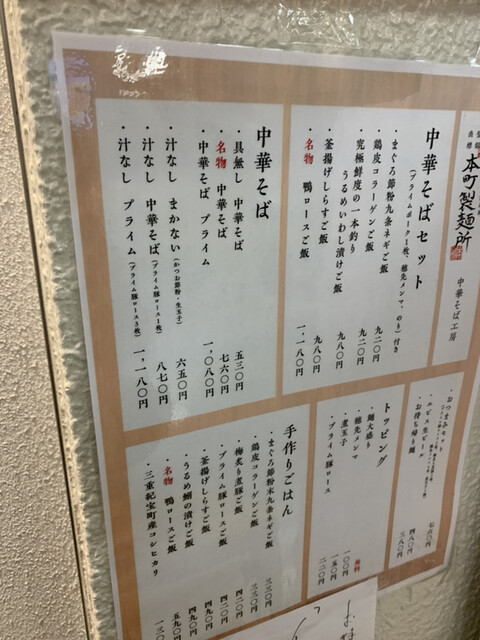 本町製麺所
中華そば工房
中華そばセット
(プライムポーク1枚、穂先メンマ、のり)付き
・まぐろ節粉九条ネギご飯 九二〇円
・鶏皮コラーゲンご飯 九二〇円
・究極鮮度の一本釣り
うるめいわし漬けご飯 九八〇円
・釜揚げしらすご飯 九八〇円
・名物 鴨ロースご飯 一、一八〇円
中華そば
・具無し 中華そば 五三〇円
・名物 中華そば 七六〇円
・中華そば プライム 一、〇八〇円
・汁なし まかない(かつお節粉・生玉子) 六五〇円
・汁なし 中華そば(プライム豚ロース1枚) 八七〇円
・汁なし プライム(プライム豚ロース3枚) 一、一八〇円
・おつまみセット 七六〇円
・エビス生ビール 四八〇円
・お持ち帰り麺 三八〇円
トッピング
・麺大盛り 無料
・穂先メンマ 一〇〇円
・煮玉子 一五〇円
・プライム豚ロース 二二〇円
手作りごはん
・まぐろ節粉末九条ネギご飯 三三〇円
・鶏皮コラーゲンご飯 三三〇円
・梅炙り煮豚ご飯 四二〇円
・プライム豚ロースご飯 四二〇円
・釜揚げしらすご飯 四九〇円
・うるめ鰯の漬けご飯 四九〇円
・名物 鴨ロースご飯 五九〇円
・三重紀宝町産コシヒカリ 一三〇